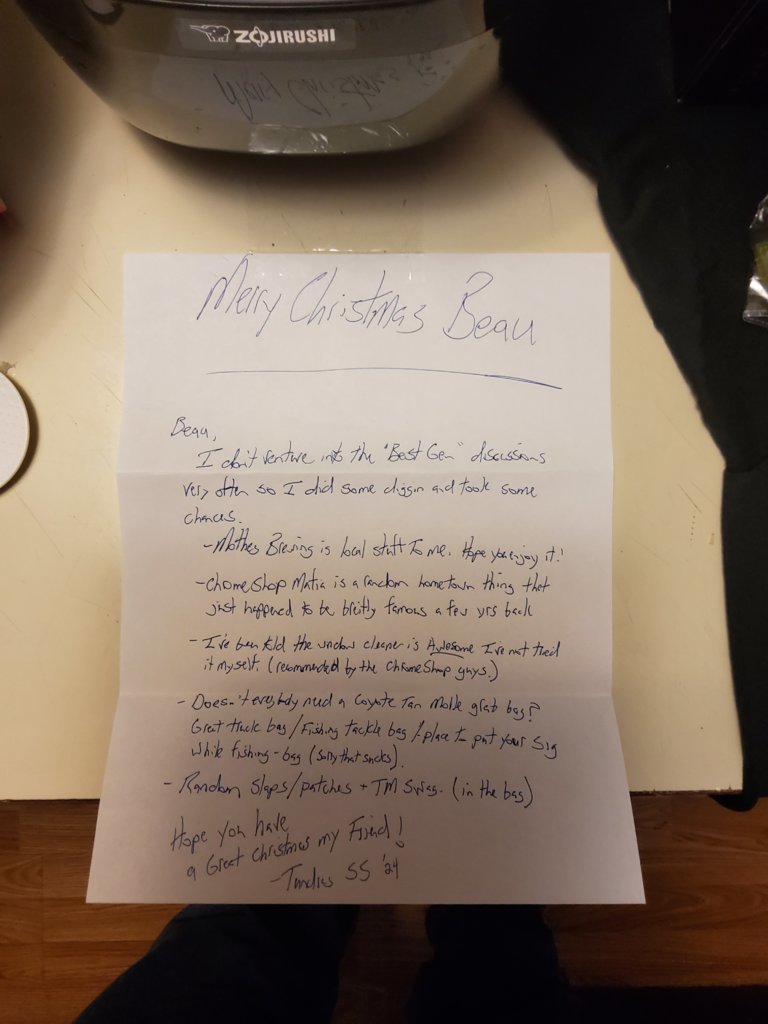 ZOJIRUSHI
Merry Christmas Beau
Beau,
I don't venture into the "Best Gen" discussions
very often so I did some diggin and took some
chances.
- Mothes Brewing is local stuff to me. Hope you enjoy it!
- Chrome Shop Mafia is a random hometown thing that
just happened to be briefly famous a few yrs back
- I've been told the window cleaner is Awesome I've not tried
it myself. (recommended by the Chrome Shop guys.)
- Doesn't everybody need a Coyote Tan Molle grab bag?
Great truck bag / Fishing tackle bag / place to put your Sig
while fishing - bag (sorry that sucks).
- Random Slaps/patches + TM Swag. (in the bag)
Hope you have
a Great Christmas my Friend!
SS '24